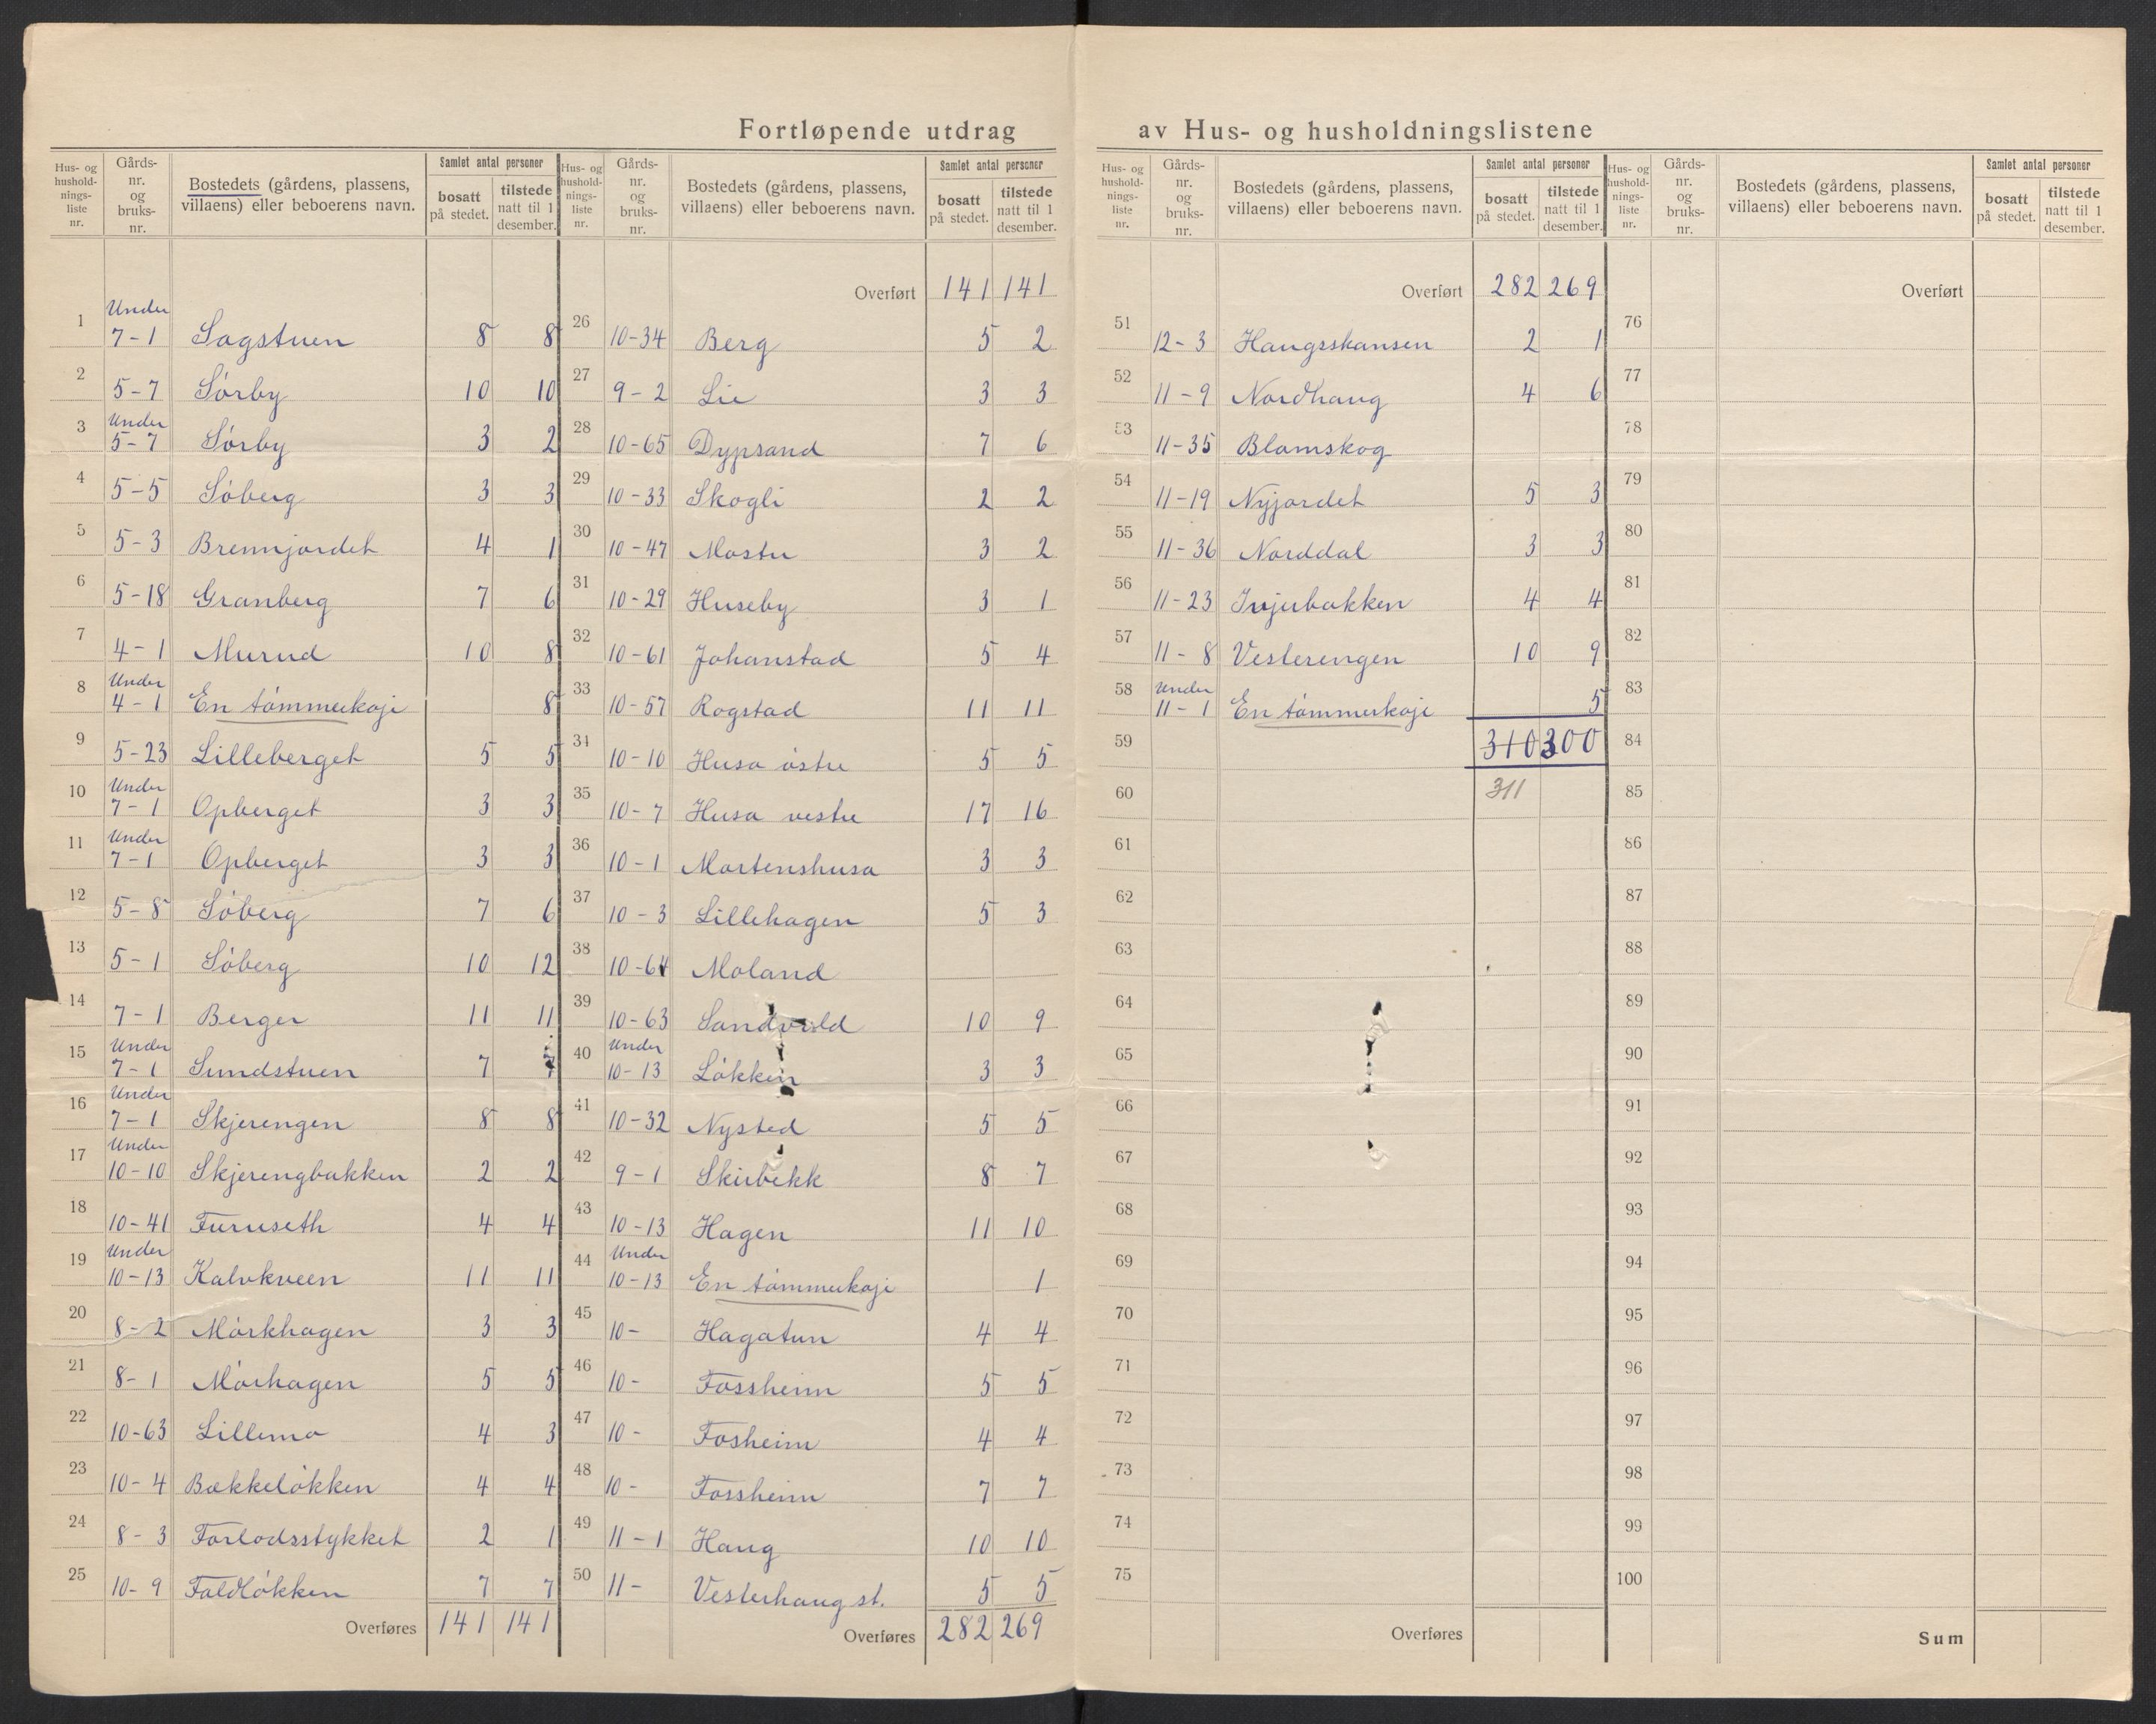 Fortløpende utdrag av Hus- og husholdningslistene
Hus- og husholdnings-liste nr. | Gårds-nr. og bruks-nr. | Bostedets (gårdens, plassens, villaens) eller beboerens navn. | Samlet antal personer | bosatt på stedet. | tilstede natt til 1 desember.
1 | Under 7-1 | Sagstuen | 8 | 8
2 | 5-7 | Sørby | 10 | 10
3 | Under 5-7 | Sørby | 3 | 2
4 | 5-5 | Søberg | 3 | 3
5 | 5-3 | Brennjordet | 4 | 1
6 | 5-18 | Granberg | 7 | 6
7 | 4-1 | Murud | 10 | 8
8 | Under 4-1 | En tømmerkoje | | 8
9 | 5-23 | Lilleberget | 5 | 5
10 | Under 7-1 | Opberget | 3 | 3
11 | Under 7-1 | Opberget | 3 | 3
12 | 5-8 | Søberg | 7 | 6
13 | 5-1 | Søberg | 10 | 12
14 | 7-1 | Berger | 11 | 11
15 | Under 7-1 | Sundstuen | 7 | 7
16 | Under 7-1 | Skjerengen | 8 | 8
17 | Under 10-10 | Skjerengbakken | 2 | 2
18 | 10-41 | Furuseth | 4 | 4
19 | Under 10-13 | Kalvkveen | 11 | 11
20 | 8-2 | Mørkhagen | 3 | 3
21 | 8-1 | Mørhagen | 5 | 5
22 | 10-63 | Lillemo | 4 | 3
23 | 10-4 | Bækkeløkken | 4 | 4
24 | 8-3 | Forlodsstykket | 2 | 1
25 | 10-9 | Faldløkken | 7 | 7
Overføres | 141 | 141
Hus- og husholdnings-liste nr. | Gårds-nr. og bruks-nr. | Bostedets (gårdens, plassens, villaens) eller beboerens navn. | Samlet antal personer | bosatt på stedet. | tilstede natt til 1 desember.
Overført | 141 | 141
26 | 10-34 | Berg | 5 | 2
27 | 9-2 | Lie | 3 | 3
28 | 10-65 | Dypsand | 7 | 6
29 | 10-33 | Skogli | 2 | 2
30 | 10-47 | Mostu | 3 | 2
31 | 10-29 | Huseby | 3 | 1
32 | 10-61 | Johanstad | 5 | 4
33 | 10-57 | Rogstad | 11 | 11
34 | 10-10 | Husa østre | 5 | 5
35 | 10-7 | Husa vestre | 17 | 16
36 | 10-1 | Mortenshusa | 3 | 3
37 | 10-3 | Lillehagen | 5 | 3
38 | 10-64 | Moland
39 | 10-63 | Sandvold | 10 | 9
40 | Under 10-13 | Løkken | 3 | 3
41 | 10-32 | Nysted | 5 | 5
42 | 9-1 | Skirbekk | 8 | 7
43 | 10-13 | Hagen | 11 | 10
44 | Under 10-13 | En tømmerkoje | | 1
45 | 10- | Hagatun | 4 | 4
46 | 10- | Fossheim | 5 | 5
47 | 10- | Fosheim | 4 | 4
48 | 10- | Forsheim | 7 | 7
49 | 11-1 | Haug | 10 | 10
50 | 11- | Vesterhaug st. | 5 | 5
Overføres | 282 | 269
Hus- og husholdnings-liste nr. | Gårds-nr. og bruks-nr. | Bostedets (gårdens, plassens, villaens) eller beboerens navn. | Samlet antal personer | bosatt på stedet. | tilstede natt til 1 desember.
Overført | 282 | 269
51 | 12-3 | Haugsskansen | 2 | 1
52 | 11-9 | Nordhaug | 4 | 6
53 | 11-35 | Blomskog
54 | 11-19 | Nyjordet | 5 | 3
55 | 11-36 | Norddal | 3 | 3
56 | 11-23 | | 4 | 4
57 | 11-8 | Vesterengen | 10 | 9
58 | Under 11-1 | En tømmerkoje | | 5
59 | 310 | 300
60 | 311
61
62
63
64
65
66
67
68
69
70
71
72
73
74
75
Overføres
Hus- og husholdnings-liste nr. | Gårds-nr. og bruks-nr. | Bostedets (gårdens, plassens, villaens) eller beboerens navn. | Samlet antal personer | bosatt på stedet. | tilstede natt til 1 desember.
Overført
76
77
78
79
80
81
82
83
84
85
86
87
88
89
90
91
92
93
94
95
96
97
98
99
100
Sum